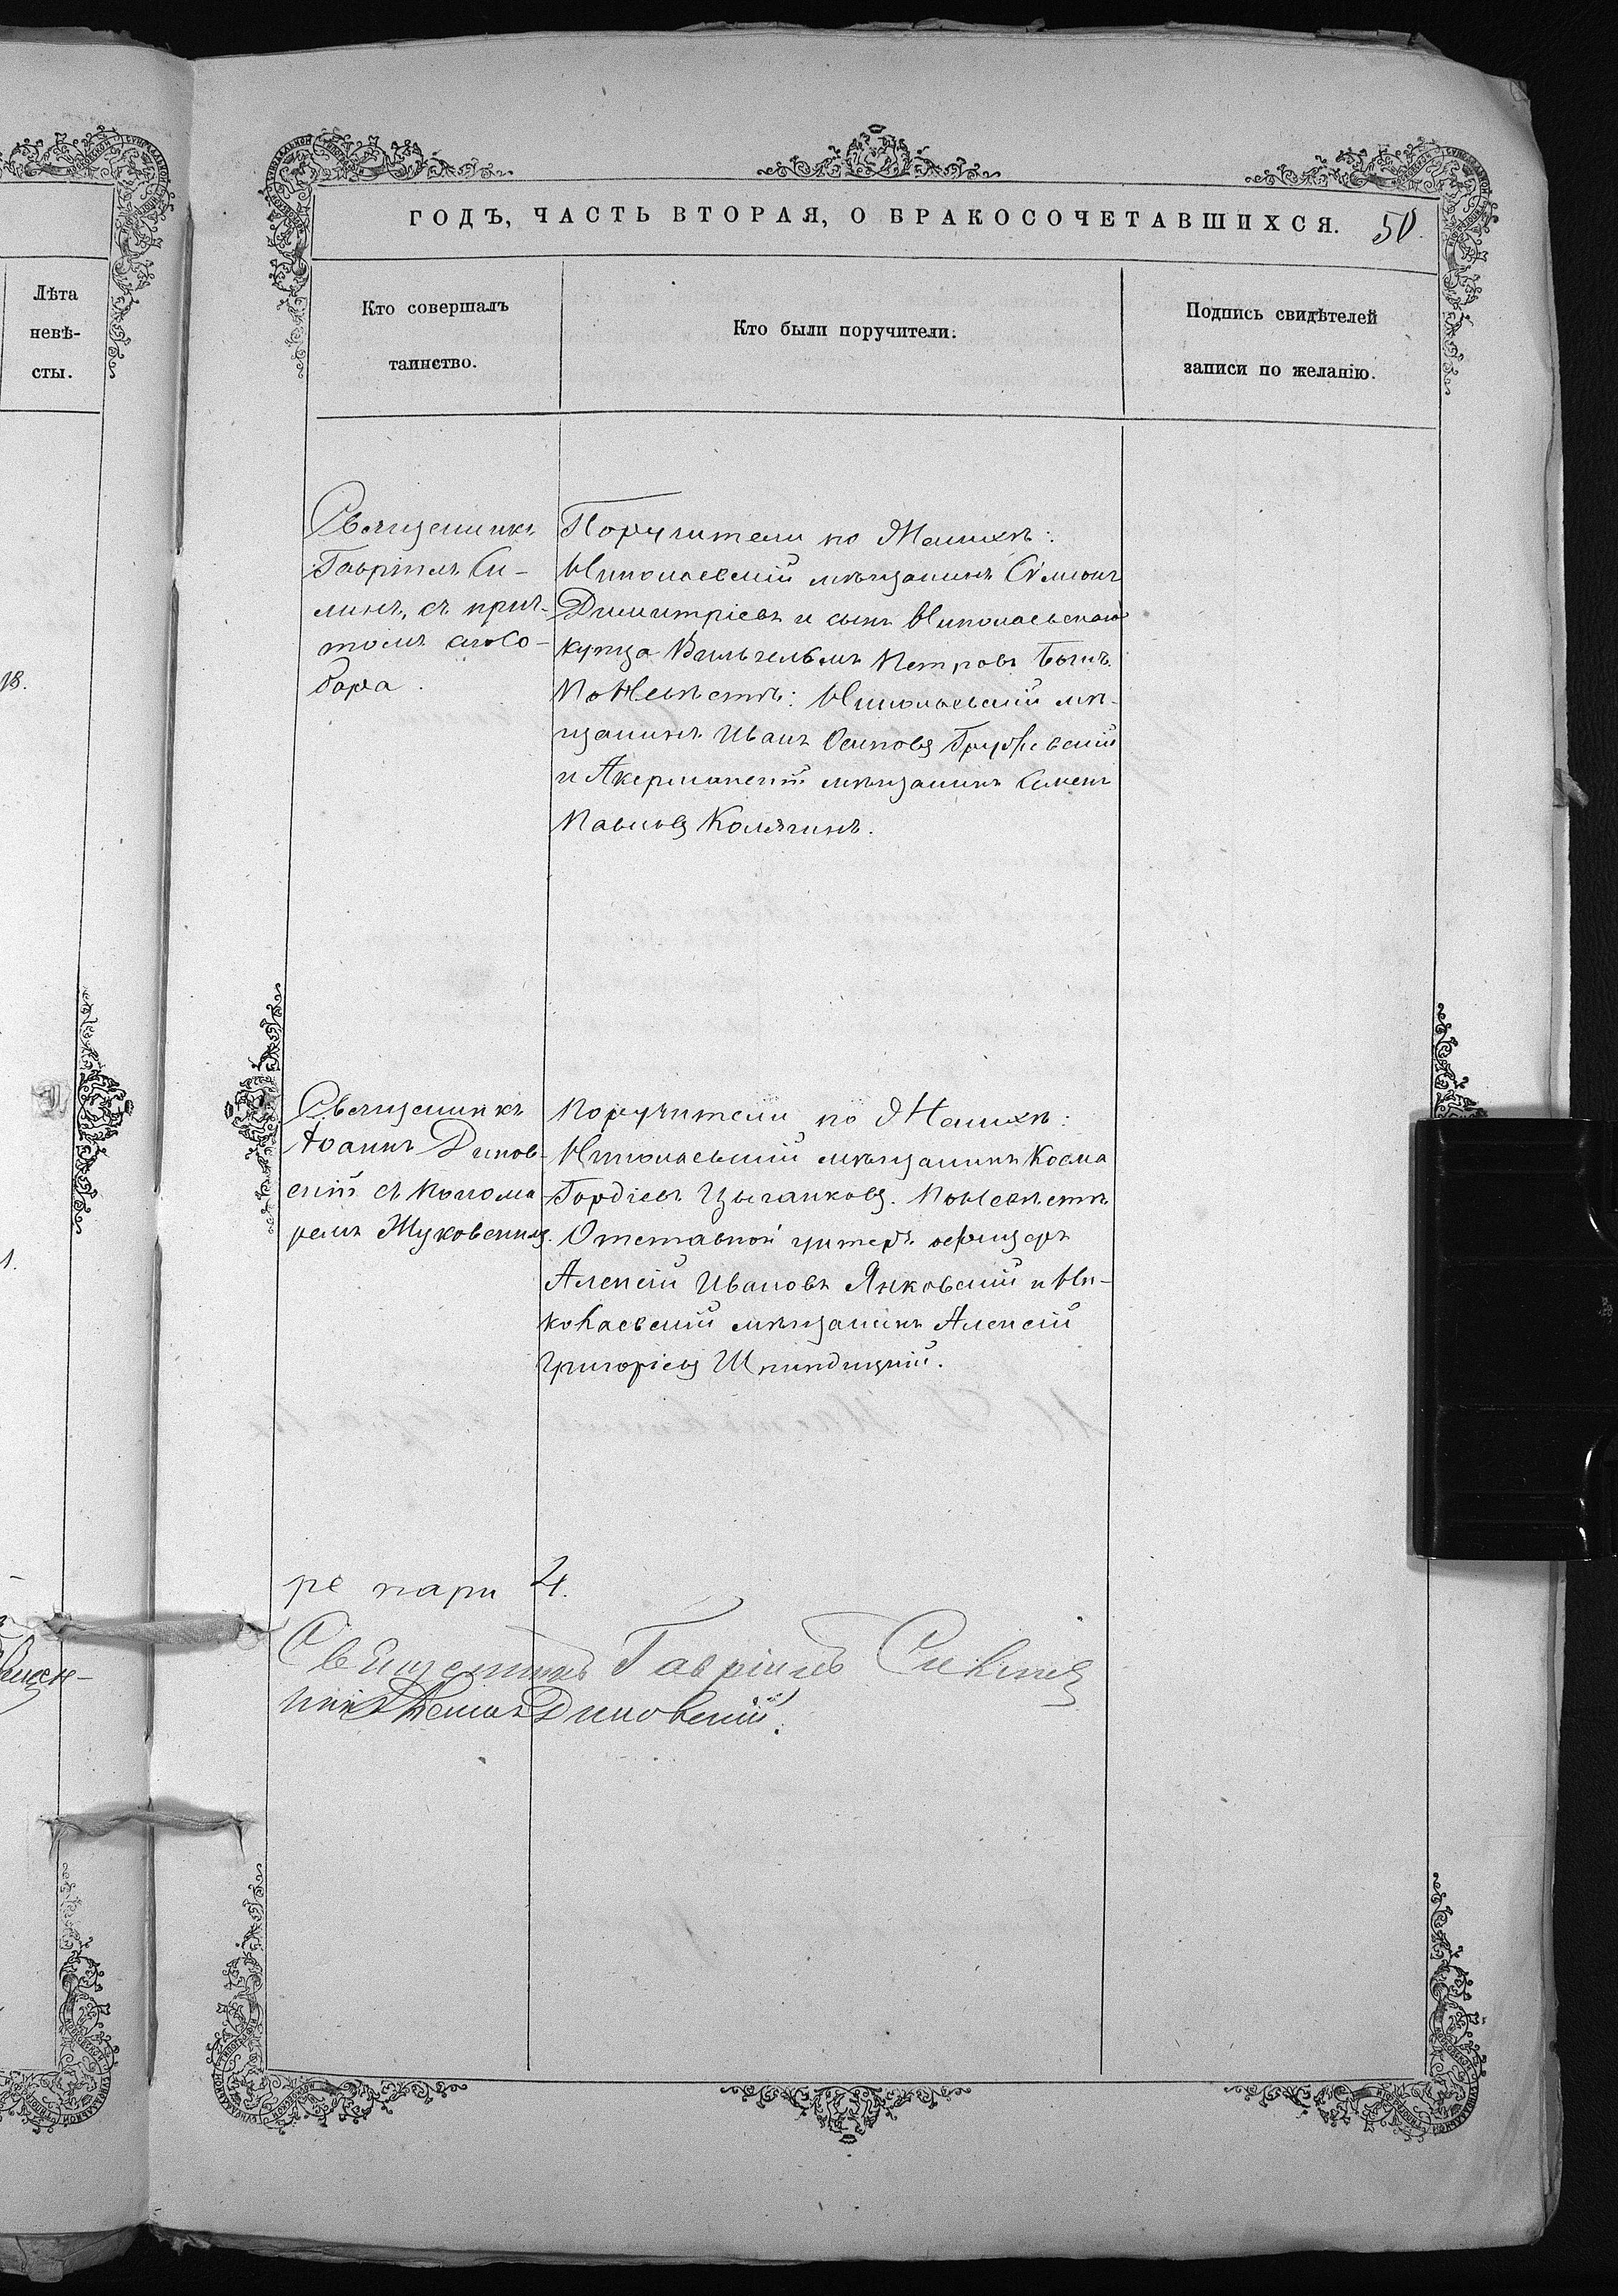 ГОДЪ, ЧАСТЬ ВТОРАЯ, О БРАКОСОЧЕТАВШИХСЯ. 50.
Лѣта
невѣ-
сты.
Кто совершалъ
таинство.
Кто были поручители.
Подпись свидѣтелей
записи по желанію.
18.
Священникъ
Гавріилъ Си-
лин, съ прич-
томъ сего Со-
бора.
Поручители по Женихѣ:
Николаевскій мѣщанинъ Сѵмеонъ
Димитріевъ и сынъ Николаевскаго
купца Вильгельмъ Петровъ
По Невѣстѣ: Николаевскій мѣ-
щанинъ Иванъ Осиповъ
и Акерманскій мѣщанинъ Симеонъ
Павловъ Колягинъ.
Священникъ
Іоаннъ Диков-
скій съ Понома-
ремъ Жуковскимъ.
Поручители по Женихѣ:
Николаевскій мѣщанинъ Косма
Гордіевъ Цыганковъ. По Невѣстѣ
Отставной унтеръ офицеръ
Алексій Ивановъ Янковскій и Ни-
колаевскій мѣщанинъ Алексій
Григоріевъ
ре пари 4.
Священникъ Гавріилъ
никъ Іоаннъ Диковскій.